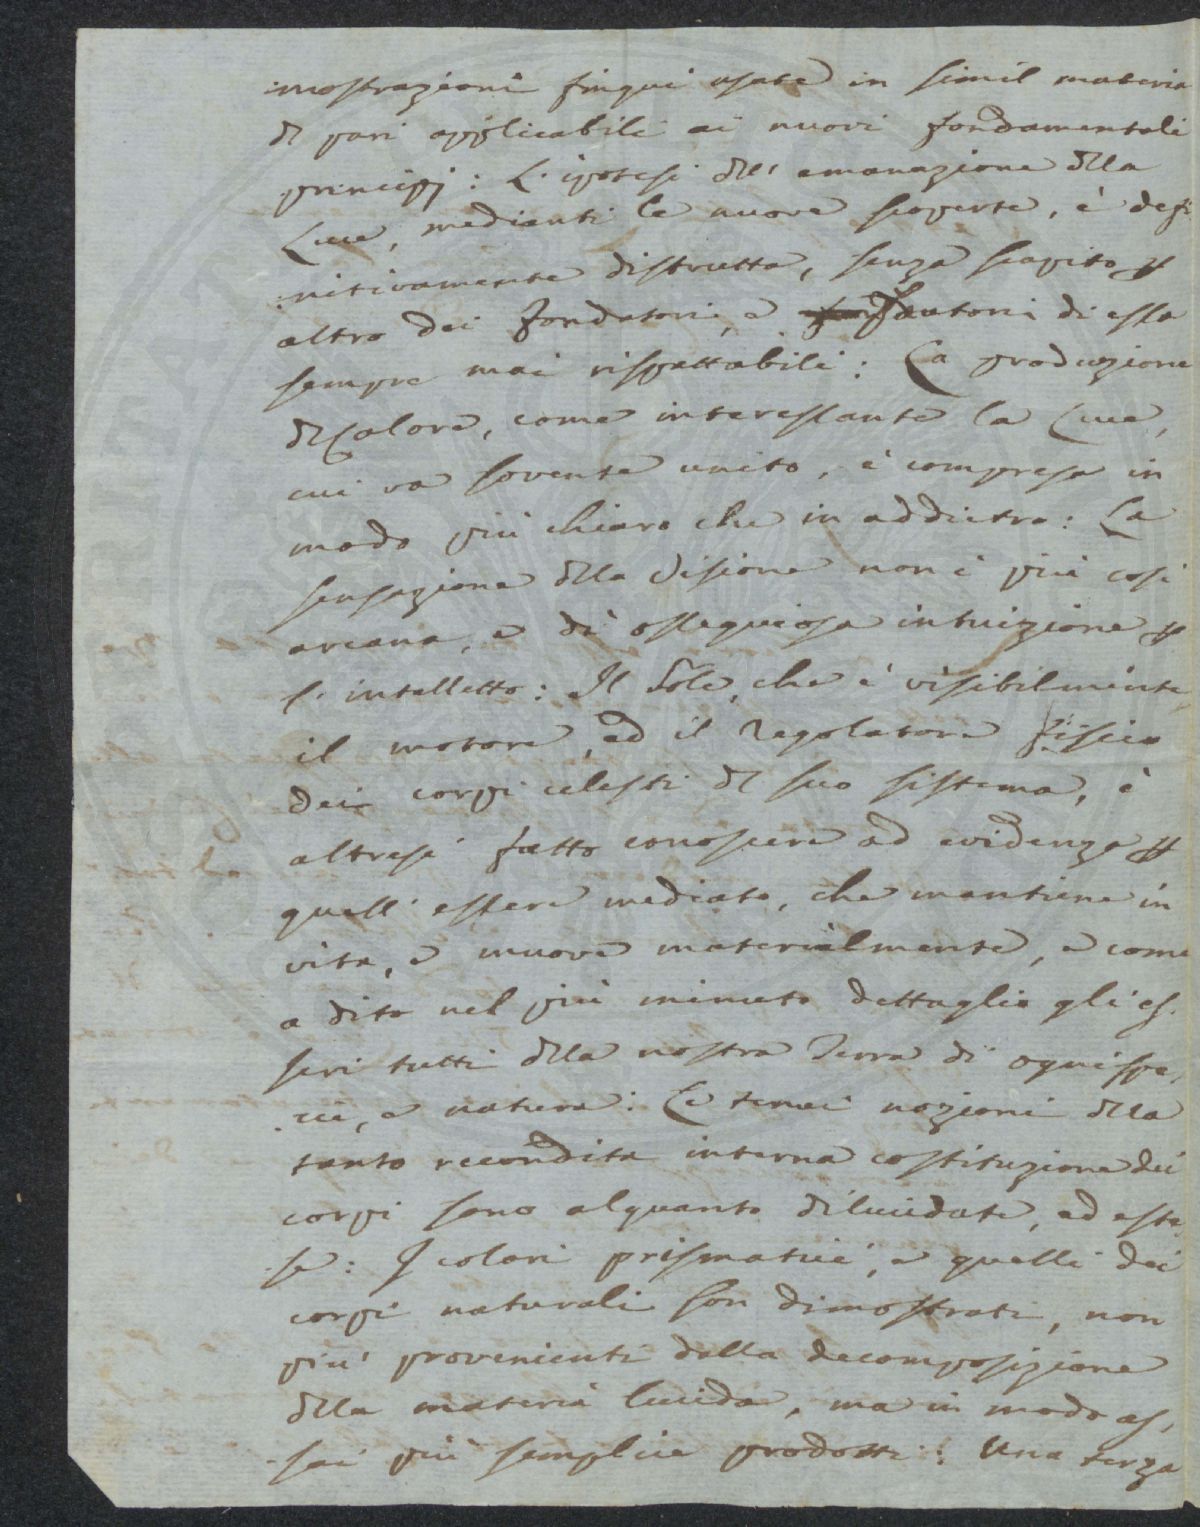 :mostrazioni finqui usate in simil materia
di pari applicabili ai nuovi fondamentali
principj: L'ipotesi dell'emanazione della
Luce, medianti le nuove scoperte, è defi
:nitivamente distrutta, senza scapito p
altro dei fondatori, e fautori di essa
sempre mai rispettabili: La produzione
di Calore, come interessante la Luce,
cui va sovente unito, è compresa in
modo più chiaro che in addietro: La
sensazione della Visione non è più così
arcana, e di ossequiosa intuizione p
l'intelletto: Il Sole, che è visibilmente
il motore, ed il regolatore fisico
dei corpi celesti di suo sistema, è
altresì fatto conoscere ad evidenza p
quell'essere mediato, che mantiene in
vita, e muove materialmente, e come
a dito nel più minuto dettaglio gli es,
seri tutti della nostra Terra di ognispe,
:cie, e natura: Le tenui nozioni della
tanto recondita interna costituzione dei
corpi sono alquanto dilucidate, ed este
:se: I colori prismatici, e quelli dei
corpi naturali son dimostrati, non
più provenienti dalla decomposizione
della materia lucida, ma in modo as,
:sai più semplice prodotti: Una terza